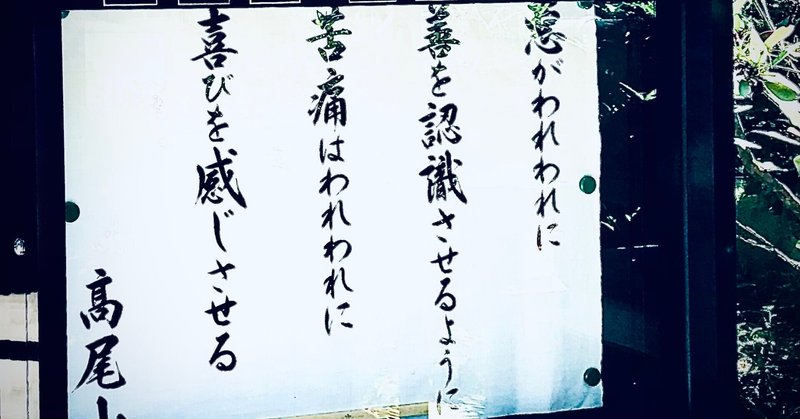 悪がわれわれに
善を認識させるように
苦痛はわれわれに
喜びを感じさせる
高尾山